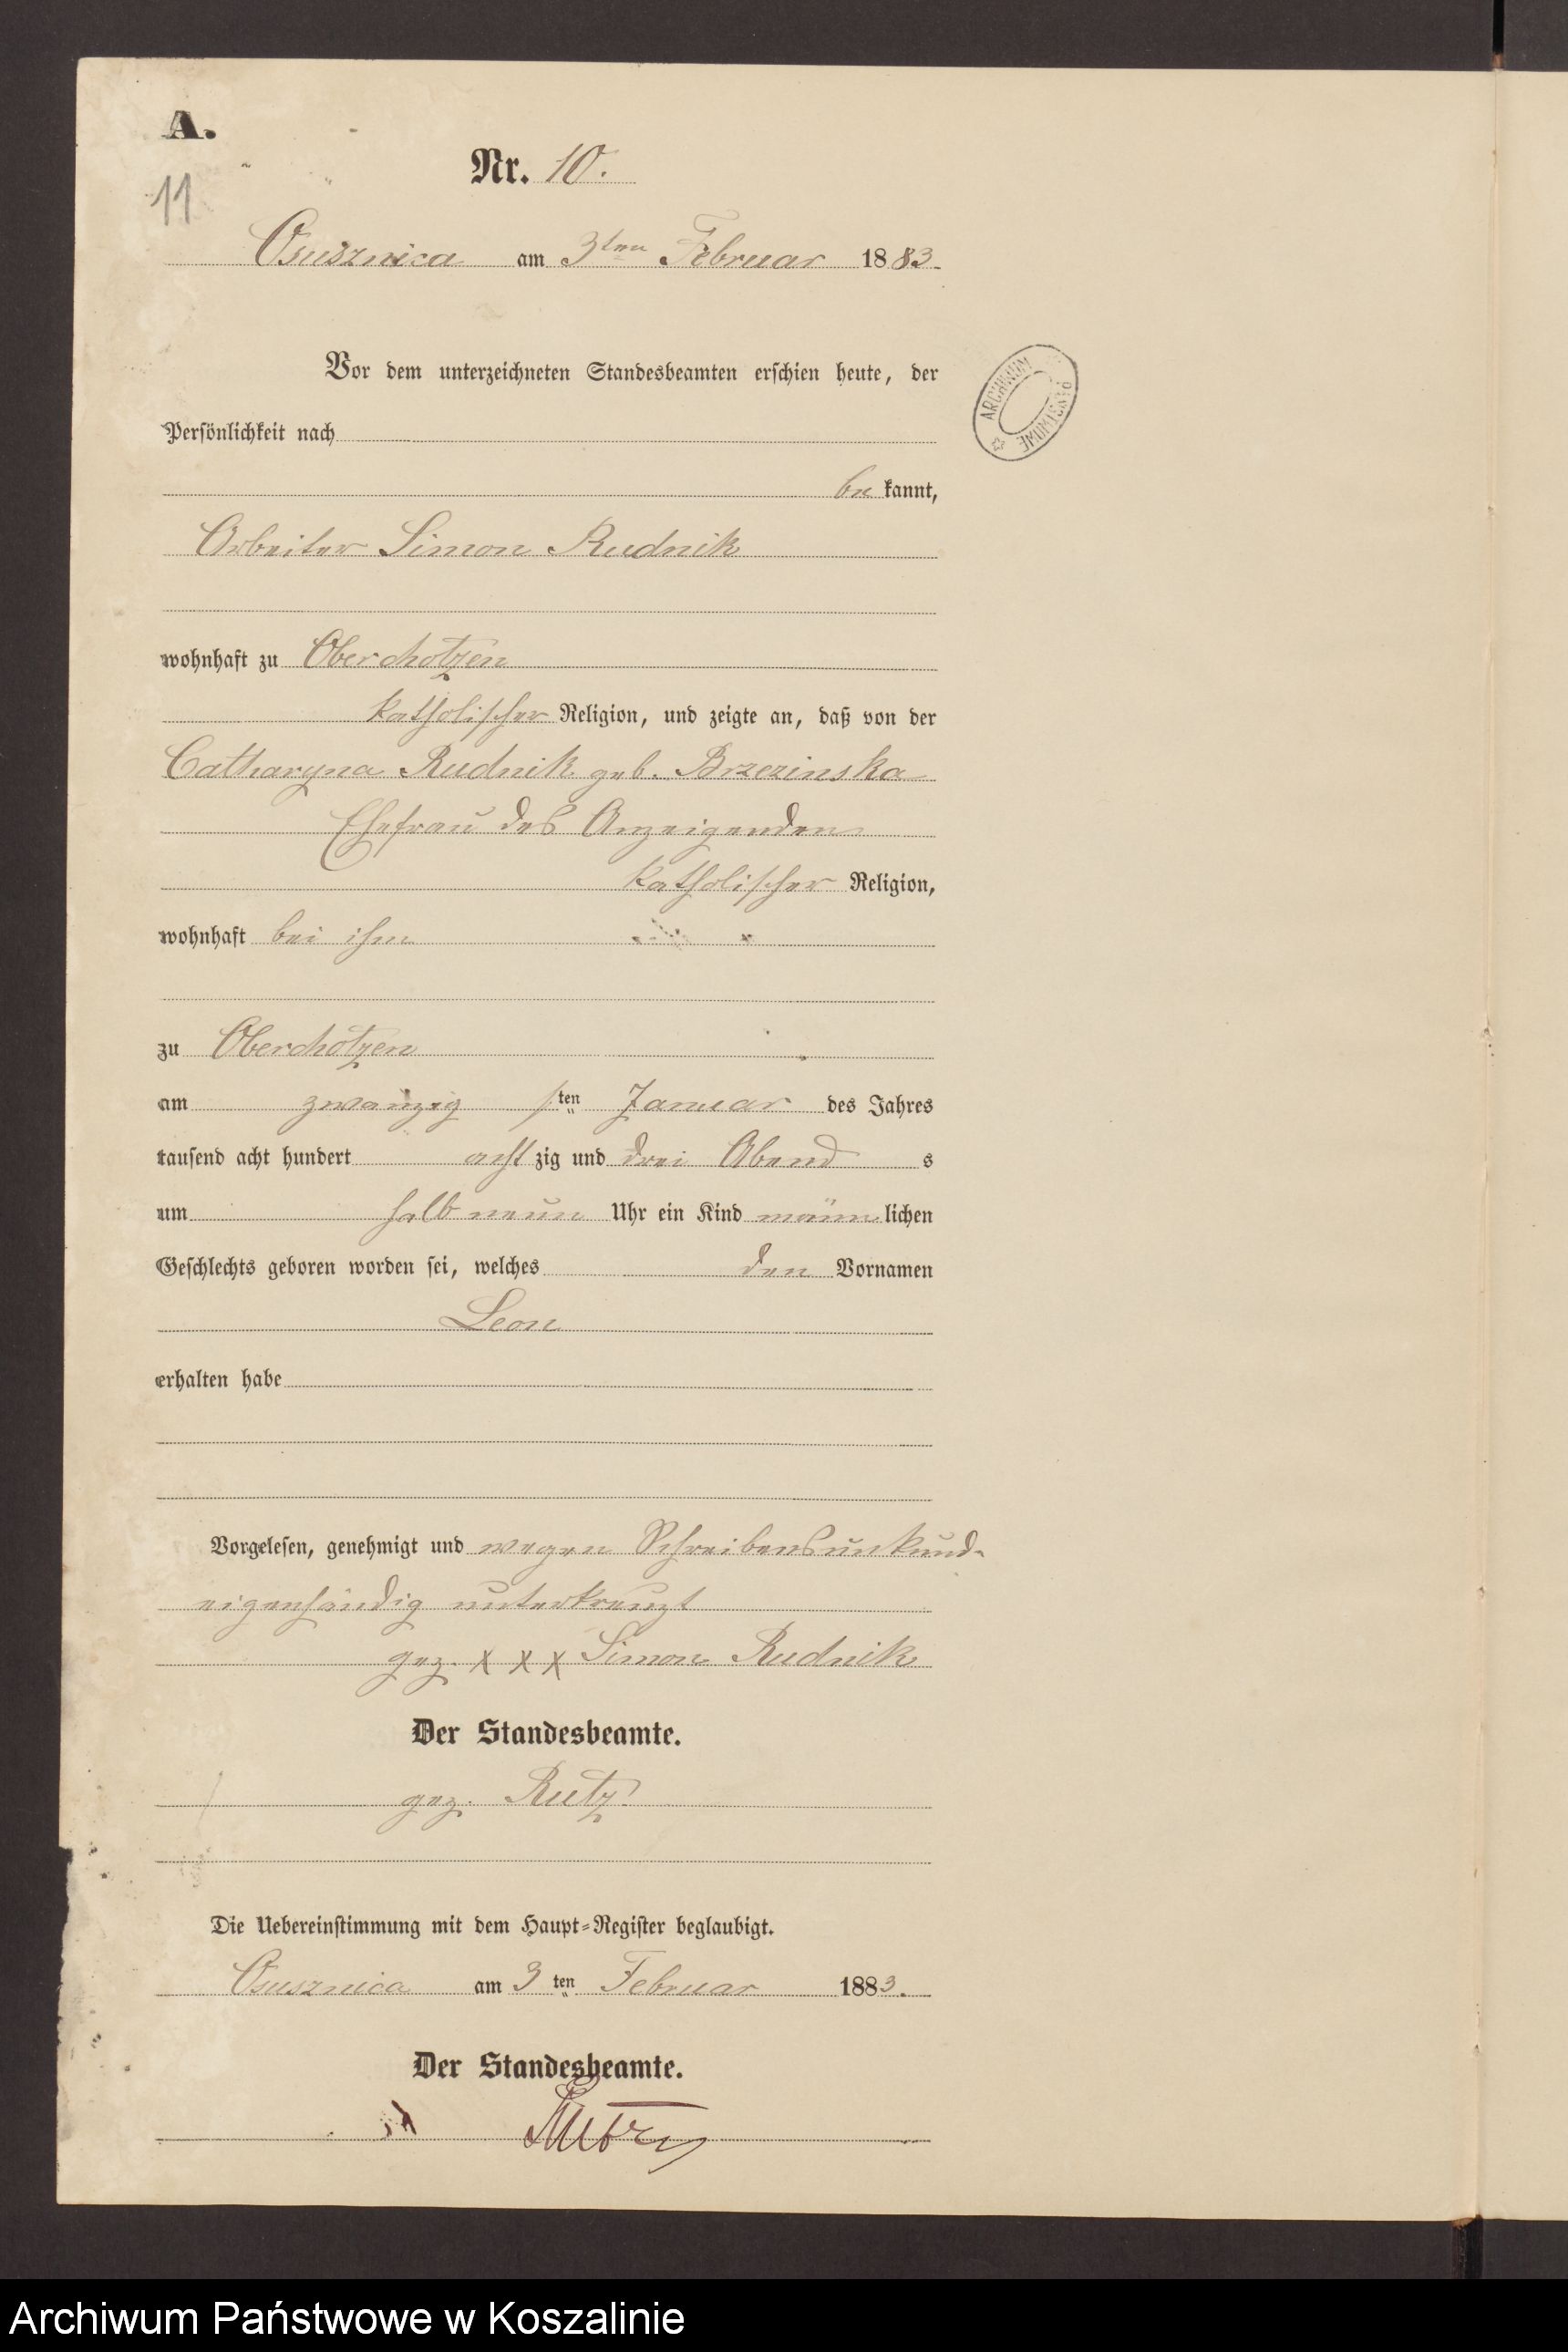 A.
Nr. 10.
11
Osusznica am 3ten Februar 1883.
Vor dem unterzeichneten Standesbeamten erschien heute, der
Persönlichkeit nach
be kannt,
Arbeiter Simon Rudnik
wohnhaft zu Oberchotzen
katholischer Religion, und zeigte an, daß von der
Catharyna Rudnik geb. Brzezinska
Ehefrau des Anzeigenden
katholischer Religion,
wohnhaft bei ihm
zu Oberchotzen
am zwanzig sten Januar des Jahres
tausend acht hundert acht zig und drei Abend s
um halb neun Uhr ein Kind männlichen
Geschlechts geboren worden sei, welches den Vornamen
Leon
erhalten habe
Vorgelesen, genehmigt und wegen Schreibensunkund-
eigenhändig unterkreuzt
gez. x x x Simon Rudnik
Der Standesbeamte.
gez. Rutz.
Die Uebereinstimmung mit dem Haupt-Register beglaubigt.
Osusznica am 3 ten Februar 1883.
Der Standesbeamte.
ARCHIWUM
Archiwum Państwowe w Koszalinie